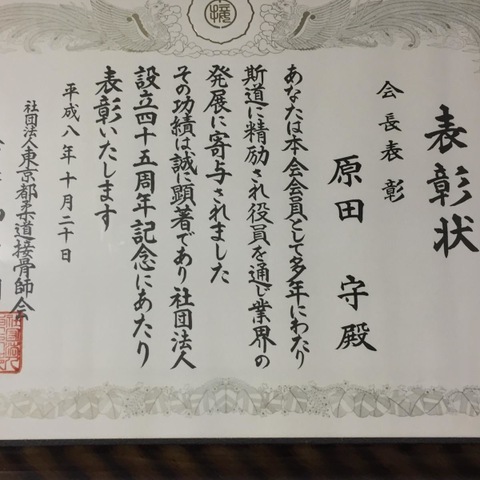 表彰状
会長表彰
原田 守殿
あなたは本会会員として多年にわたり
斯道に精励され役員を通じ業界の
発展に寄与されました
その功績は誠に顕著であり社団法人
設立四十五周年記念にあたり
表彰いたします
平成八年十月二十日
社団法人東京都柔道接骨師会